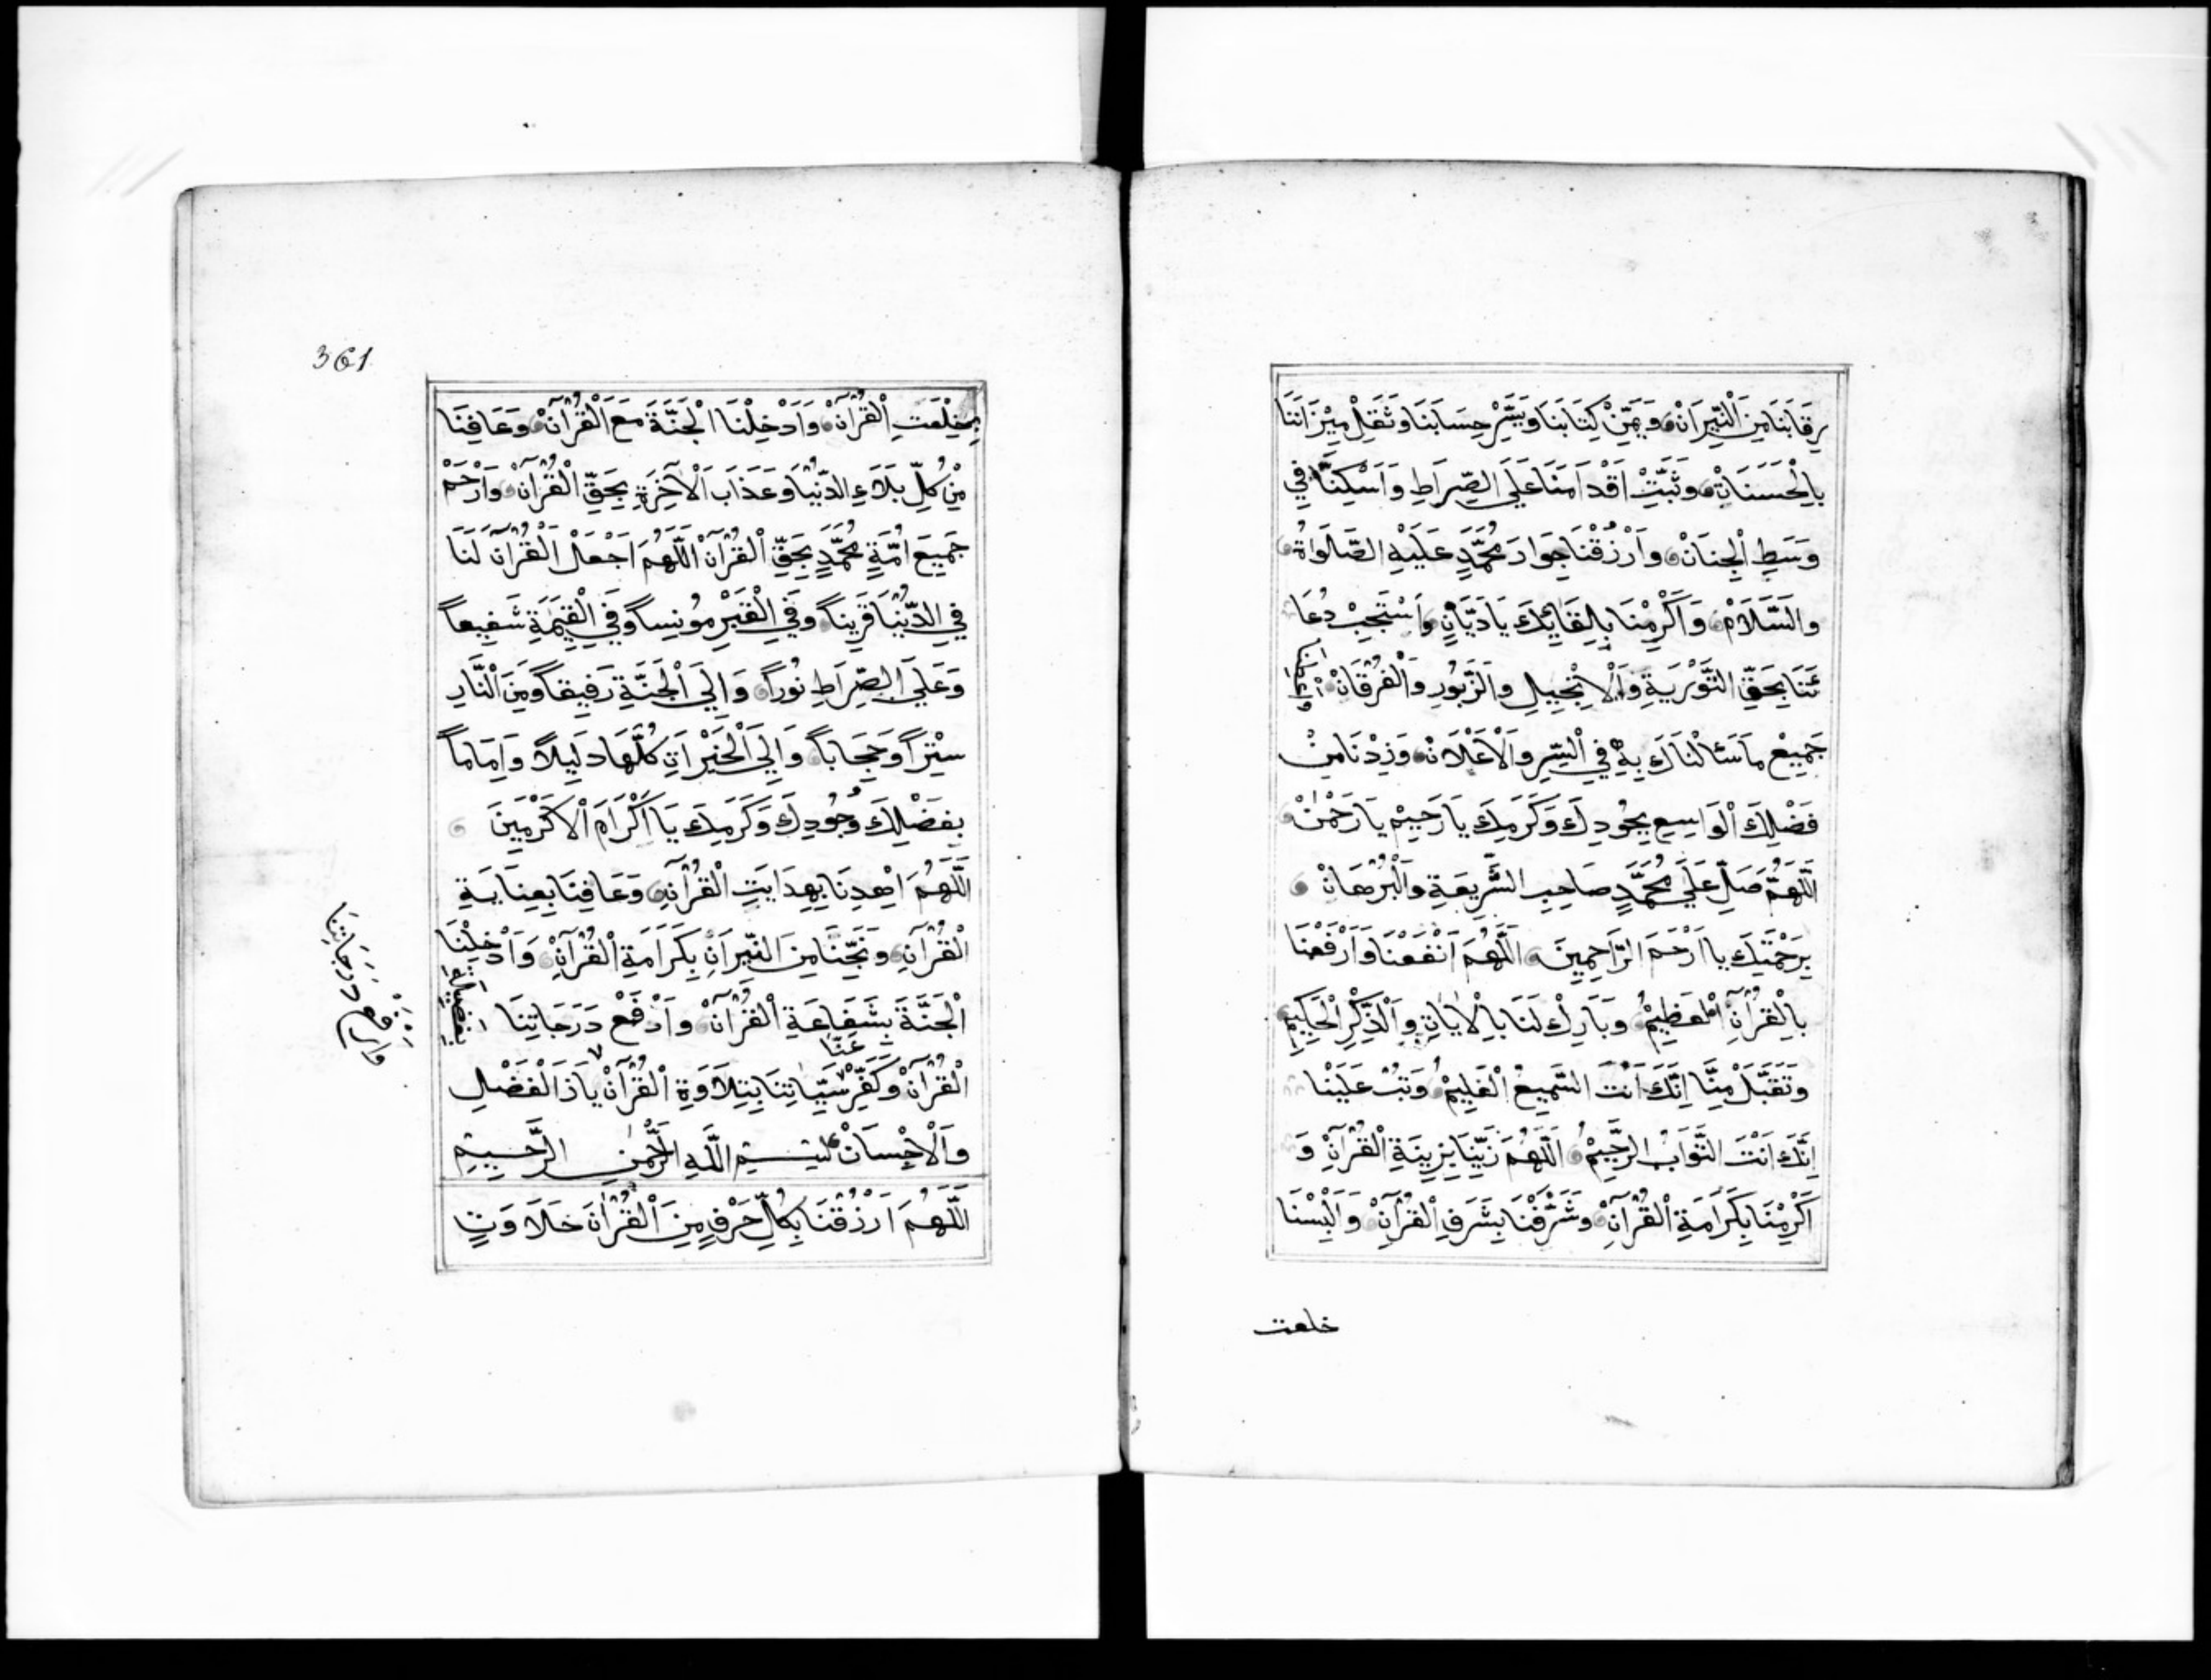 رِقَابَنَا مِنَ الْنِّيرَانْ وَيَمِّنْ كِتَابَنَا وَيَسِّرْ حِسَابَنَا وَثَقِلْ مِيْزَانَنَا
بِالْحَسَنَاتْ وَثَبِّتْ اَقْدَامَنَا عَلَى الصِّرَاطِ وَاَسْكِنَّا فِي
وَسَطِ الْجِنَانْ وَارْزُقْنَا جَوَارَ مُحَمَّدٍ عَلَيْهِ الصَّلَوَاةُ
وَالسَّلَامْ وَاَكْرِمْنَا بِلِقَائِكَ يَا دَيَّانْ وَاسْتَجِبْ دُعَا
ئَنَا بِحَقِّ التَّوْرٰيةِ وَالْاِنْجِيلِ وَالزَّبُورِ وَالْفُرْقَانْ
جَمِيعْ مَا سَئَالْنَاكَ بِهْ فِي الْسِّرِ وَالْاَعْلَانْ وَزِدْنَا مِنْ
فَضْلِكَ الْوَاسِعِ بِجُودِكَ وَكَرَمِكَ يَا رَحِيْمْ يَا رَحْمٰنْ
اَللّٰهُمَّ صَلِّ عَلٰى مُحَمَّدٍ صَاحِبِ الشَّرِيعَةِ وَالْبُرْهَانْ
بِرَحْمَتِكَ يَا اَرْحَمَ الرَّاحِمِينَ اَللّٰهُمَ انْفَعْنَا وَارْفَعْنَا
بِالْقُرْآنِ الْعَظِيمْ وَبَارِكْ لَنَا بِالْاٰيَاتِ وَالْذِّكْرِ الْحَكِيمِ
وَتَقَبَّلْ مِنَّا اِنَّكَ اَنْتَ السَّمِيعْ الْعَلِيمْ وَتُبْ عَلَيْنَا
اِنَّكَ اَنْتَ التَّوَابُ الرَّحِيمْ اَللّٰهُمَ زَيِّنَا بِزِينَةِ الْقُرْآنِ وَ
اَكْرِمْنَا بِكَرَامَةِ الْقُرْآنِ وَشَرِّفْنَا بِشَرَفِ الْقُرْآنِ وَاَلْبِسْنَا
خلعت
361
بِخِلْعَتِ الْقُرْآنْ وَاَدْخِلْنَا الْجَنَّةَ مَعَ الْقُرْآنْ وَعَافِنَا
مِنْ كُلِّ بَلَاءِ الدُّنْيَا وَعَذَابَ الْاٰخِرَةِ بِحَقِّ الْقُرْآنْ وَارْحَمْ
جَمِيعَ اُمَّةِ مُحَمَّدٍ بِحَقِّ الْقُرْآنْ اَللّٰهُمَ اجْعَلْ الْقُرْآنَ لَنَا
فِي الدُّنْيَا قَرِينًا وَفِي الْقَبْرِ مُونِسًا وَفِي الْقِيٰمَةِ شَفِيعًا
وَعَلَى الصِّرَاطِ نُورًا وَاِلَى الْجَنَّةِ رَفِيقًا وَمِنَ الْنَّارِ
سِتْرًا وَحِجَابًا وَاِلَى الْخَيْرَاتِ كُلِّهَا دَلِيلًا وَاِمَامًا
بِفَضْلِكَ وَجُودِكَ وَكَرَمِكَ يَا اَكْرَامَ الْاَكْرَمِينَ
اَللّٰهُمَ اهْدِنَا بِهِدَايَتِ الْقُرْآنِ وَعَافِنَا بِعِنَايَةِ
الْقُرْآنِ وَنَجِّنَا مِنَ النِّيرَانِ بِكَرَامَةِ الْقُرْآنِ وَاَدْخِلْنَا
الْجَنَّةَ بِشَفَاعَةِ الْقُرْآنْ وَارْفَعْ دَرَجَاتِنَا بفضيلة
وارفع درجاتنا
عَنَّا
الْقُرْآنْ وَكَفِّرْ سَيِّاٰتِنَا بِتِلَاوَةِ الْقُرْآنْ يَا ذَالْفَضْلِ
وَالْاِحْسَانْ بِسْمِ اللّٰهِ الرَّحْمٰنِ الرَّحِيمِ
اَللّٰهُمَ ارْزُقْنَا بِكُلِّ حَرْفٍ مِنَ الْقُرْاٰنَ حَلَاوَتٍ